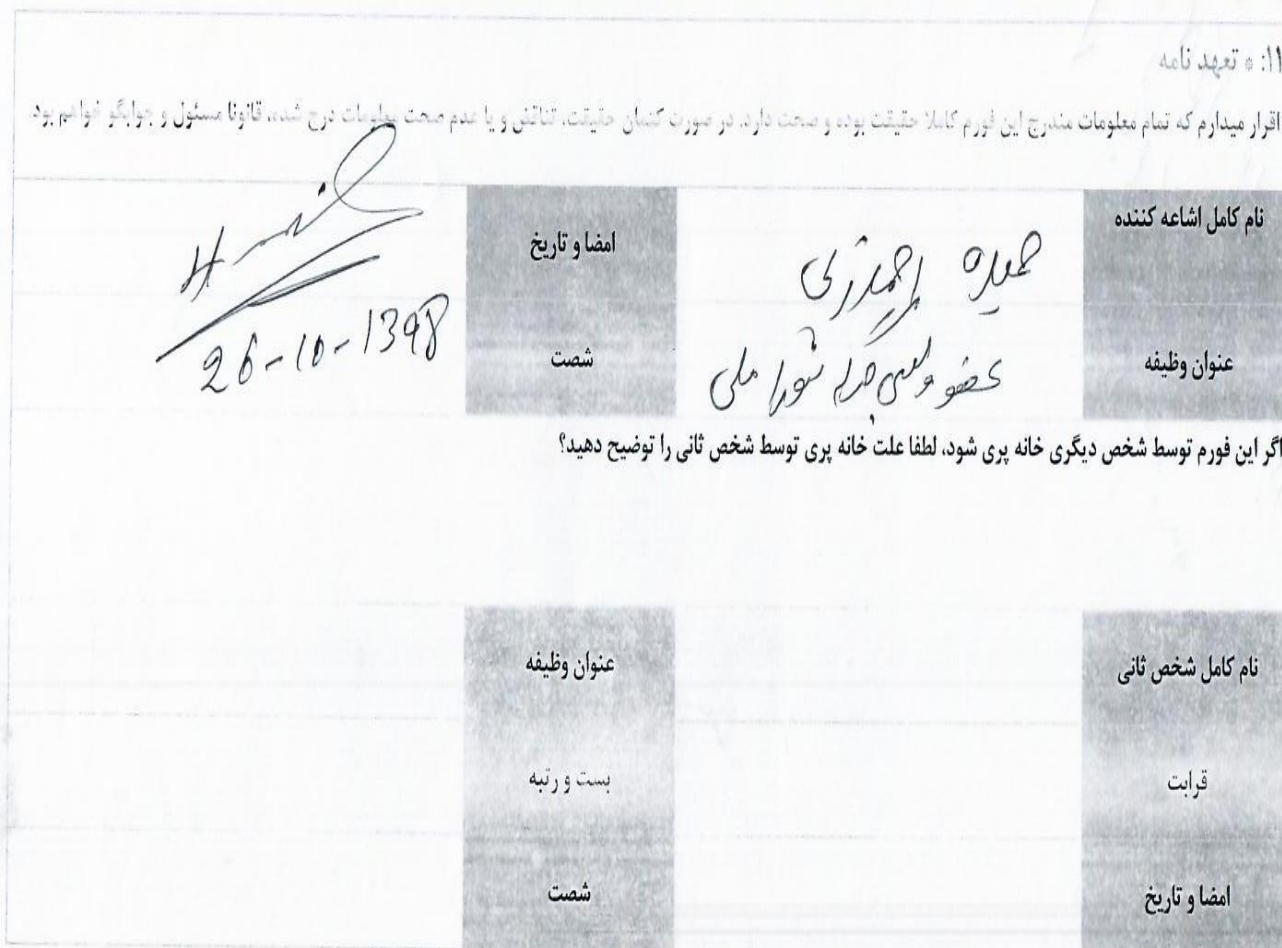 ۱۱: * تعهد نامه
اقرار میدارم که تمام معلومات مندرج این فورم کاملا حقیقت بوده و صحت دارد. در صورت کتمان حقیقت، تناقض و یا عدم صحت معلومات درج شده، قانونا مسئول و جوابگو خواهم بود.
نام کامل اشاعه کننده
حمیده احمدزی
امضا و تاریخ
26-10-1398
عنوان وظیفه
عضو ولسی جرگه شورا ملی
شصت
اگر این فورم توسط شخص دیگری خانه پری شود، لطفا علت خانه پری توسط شخص ثانی را توضیح دهید؟
نام کامل شخص ثانی
عنوان وظیفه
قرابت
بست و رتبه
امضا و تاریخ
شصت